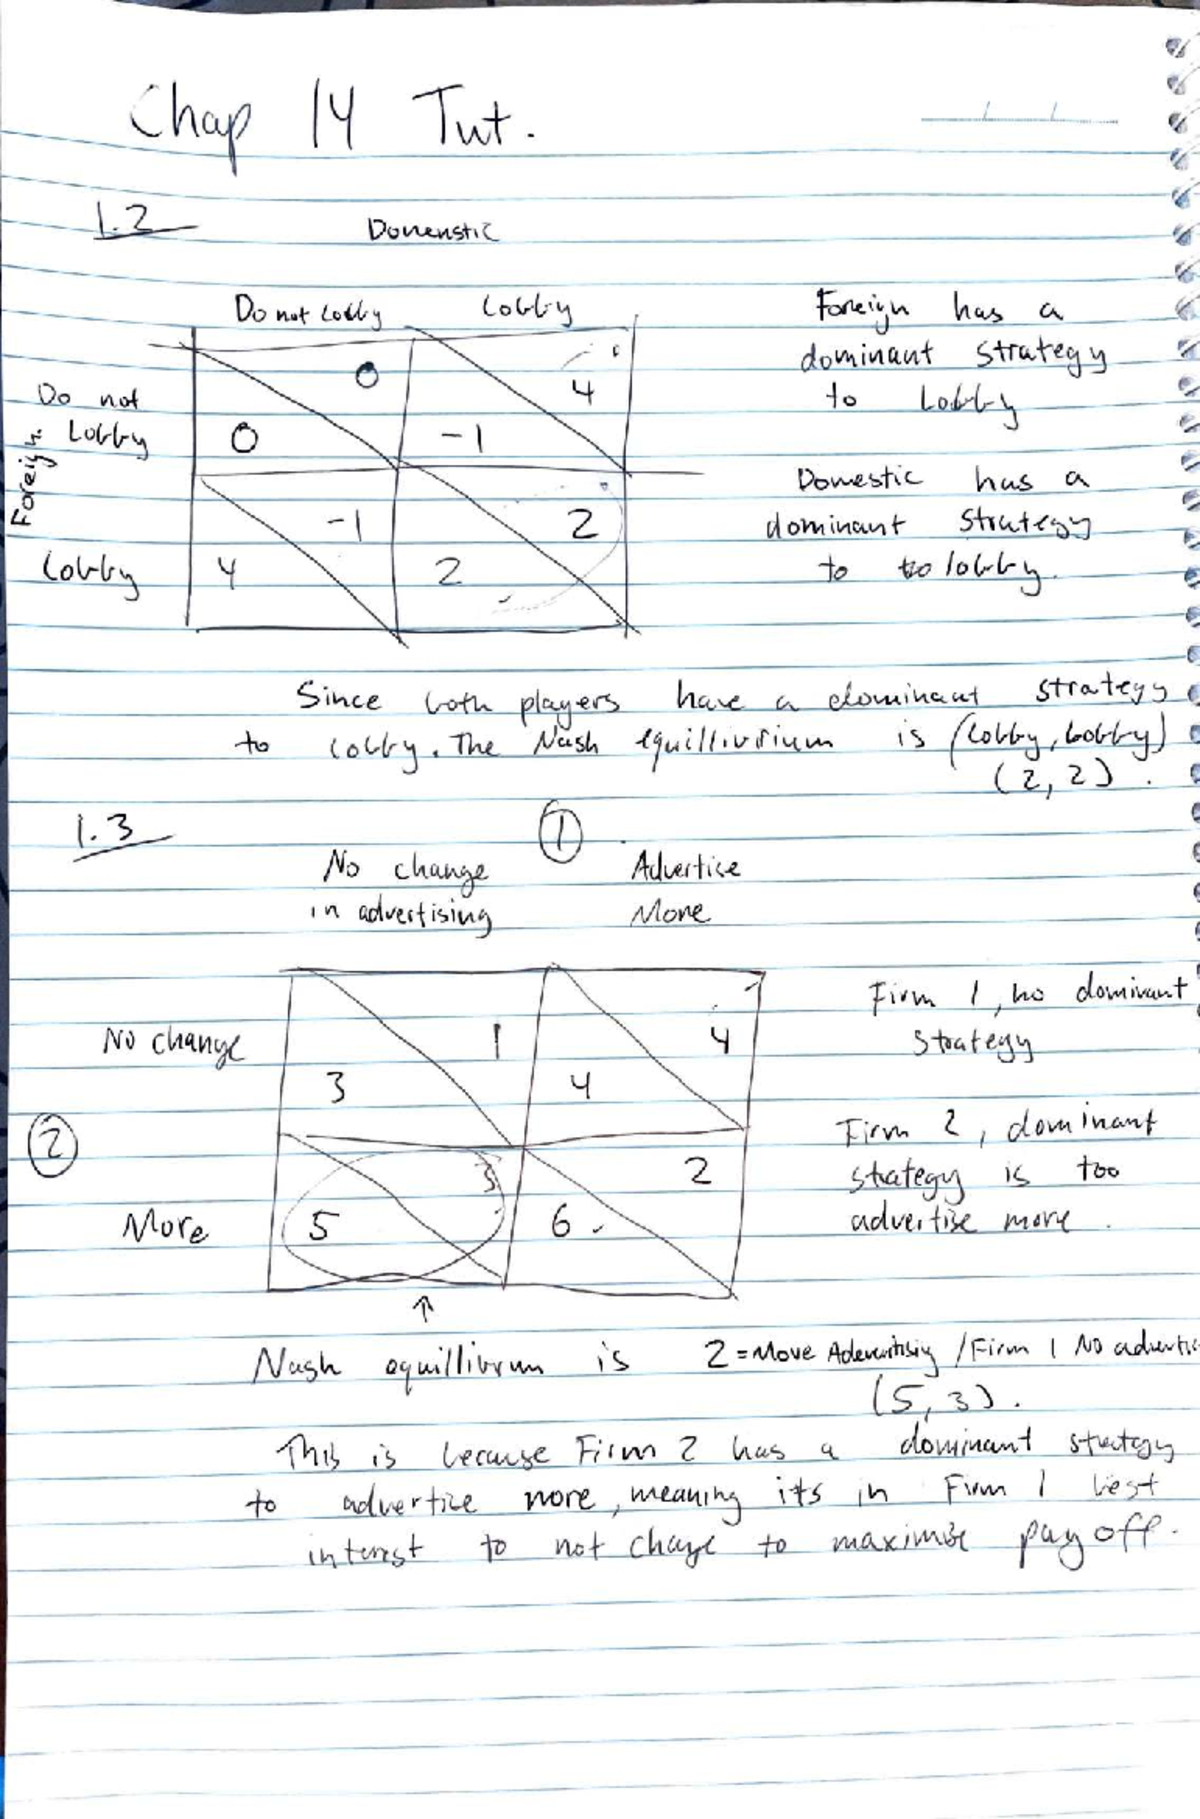 Chap 14 Tut.
1.2
Domenstic
Do not Lobby Lobby
Foreign has a
dominant strategy
to Lobby
Do not
Lobby
0
0
4
-1
Foreign.
Domestic has a
dominant strategy
to lobby.
Lobby
-1
4
2
2
Since both players have a dominant strategy
to lobby. The Nash equillibrium is (Lobby, Lobby)
(2, 2).
1.3
1
No change Advertise
in advertising More
Firm 1, no dominant
strategy
No change
1
3
4
4
2
Firm 2, dominant
strategy is too
advertise more.
More
3
5
2
6.
↑
Nash equillibrum is 2 = More /Firm 1 No
(5, 3).
This is because Firm 2 has a dominant strategy
to advertise more, meaning its in Firm 1 best
interest to not change to maximise pay off.